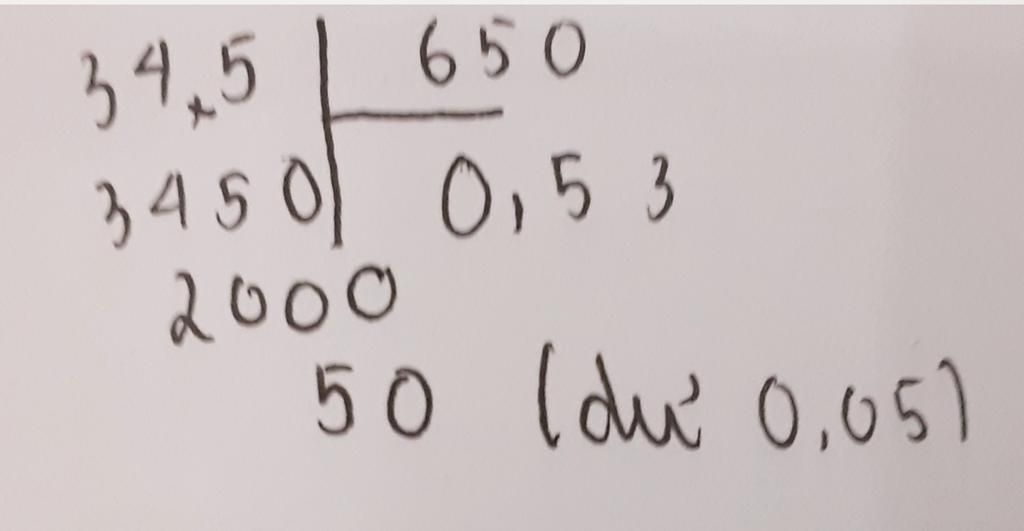 34,5 650
3450 0,53
2000
50 (dư 0,05)